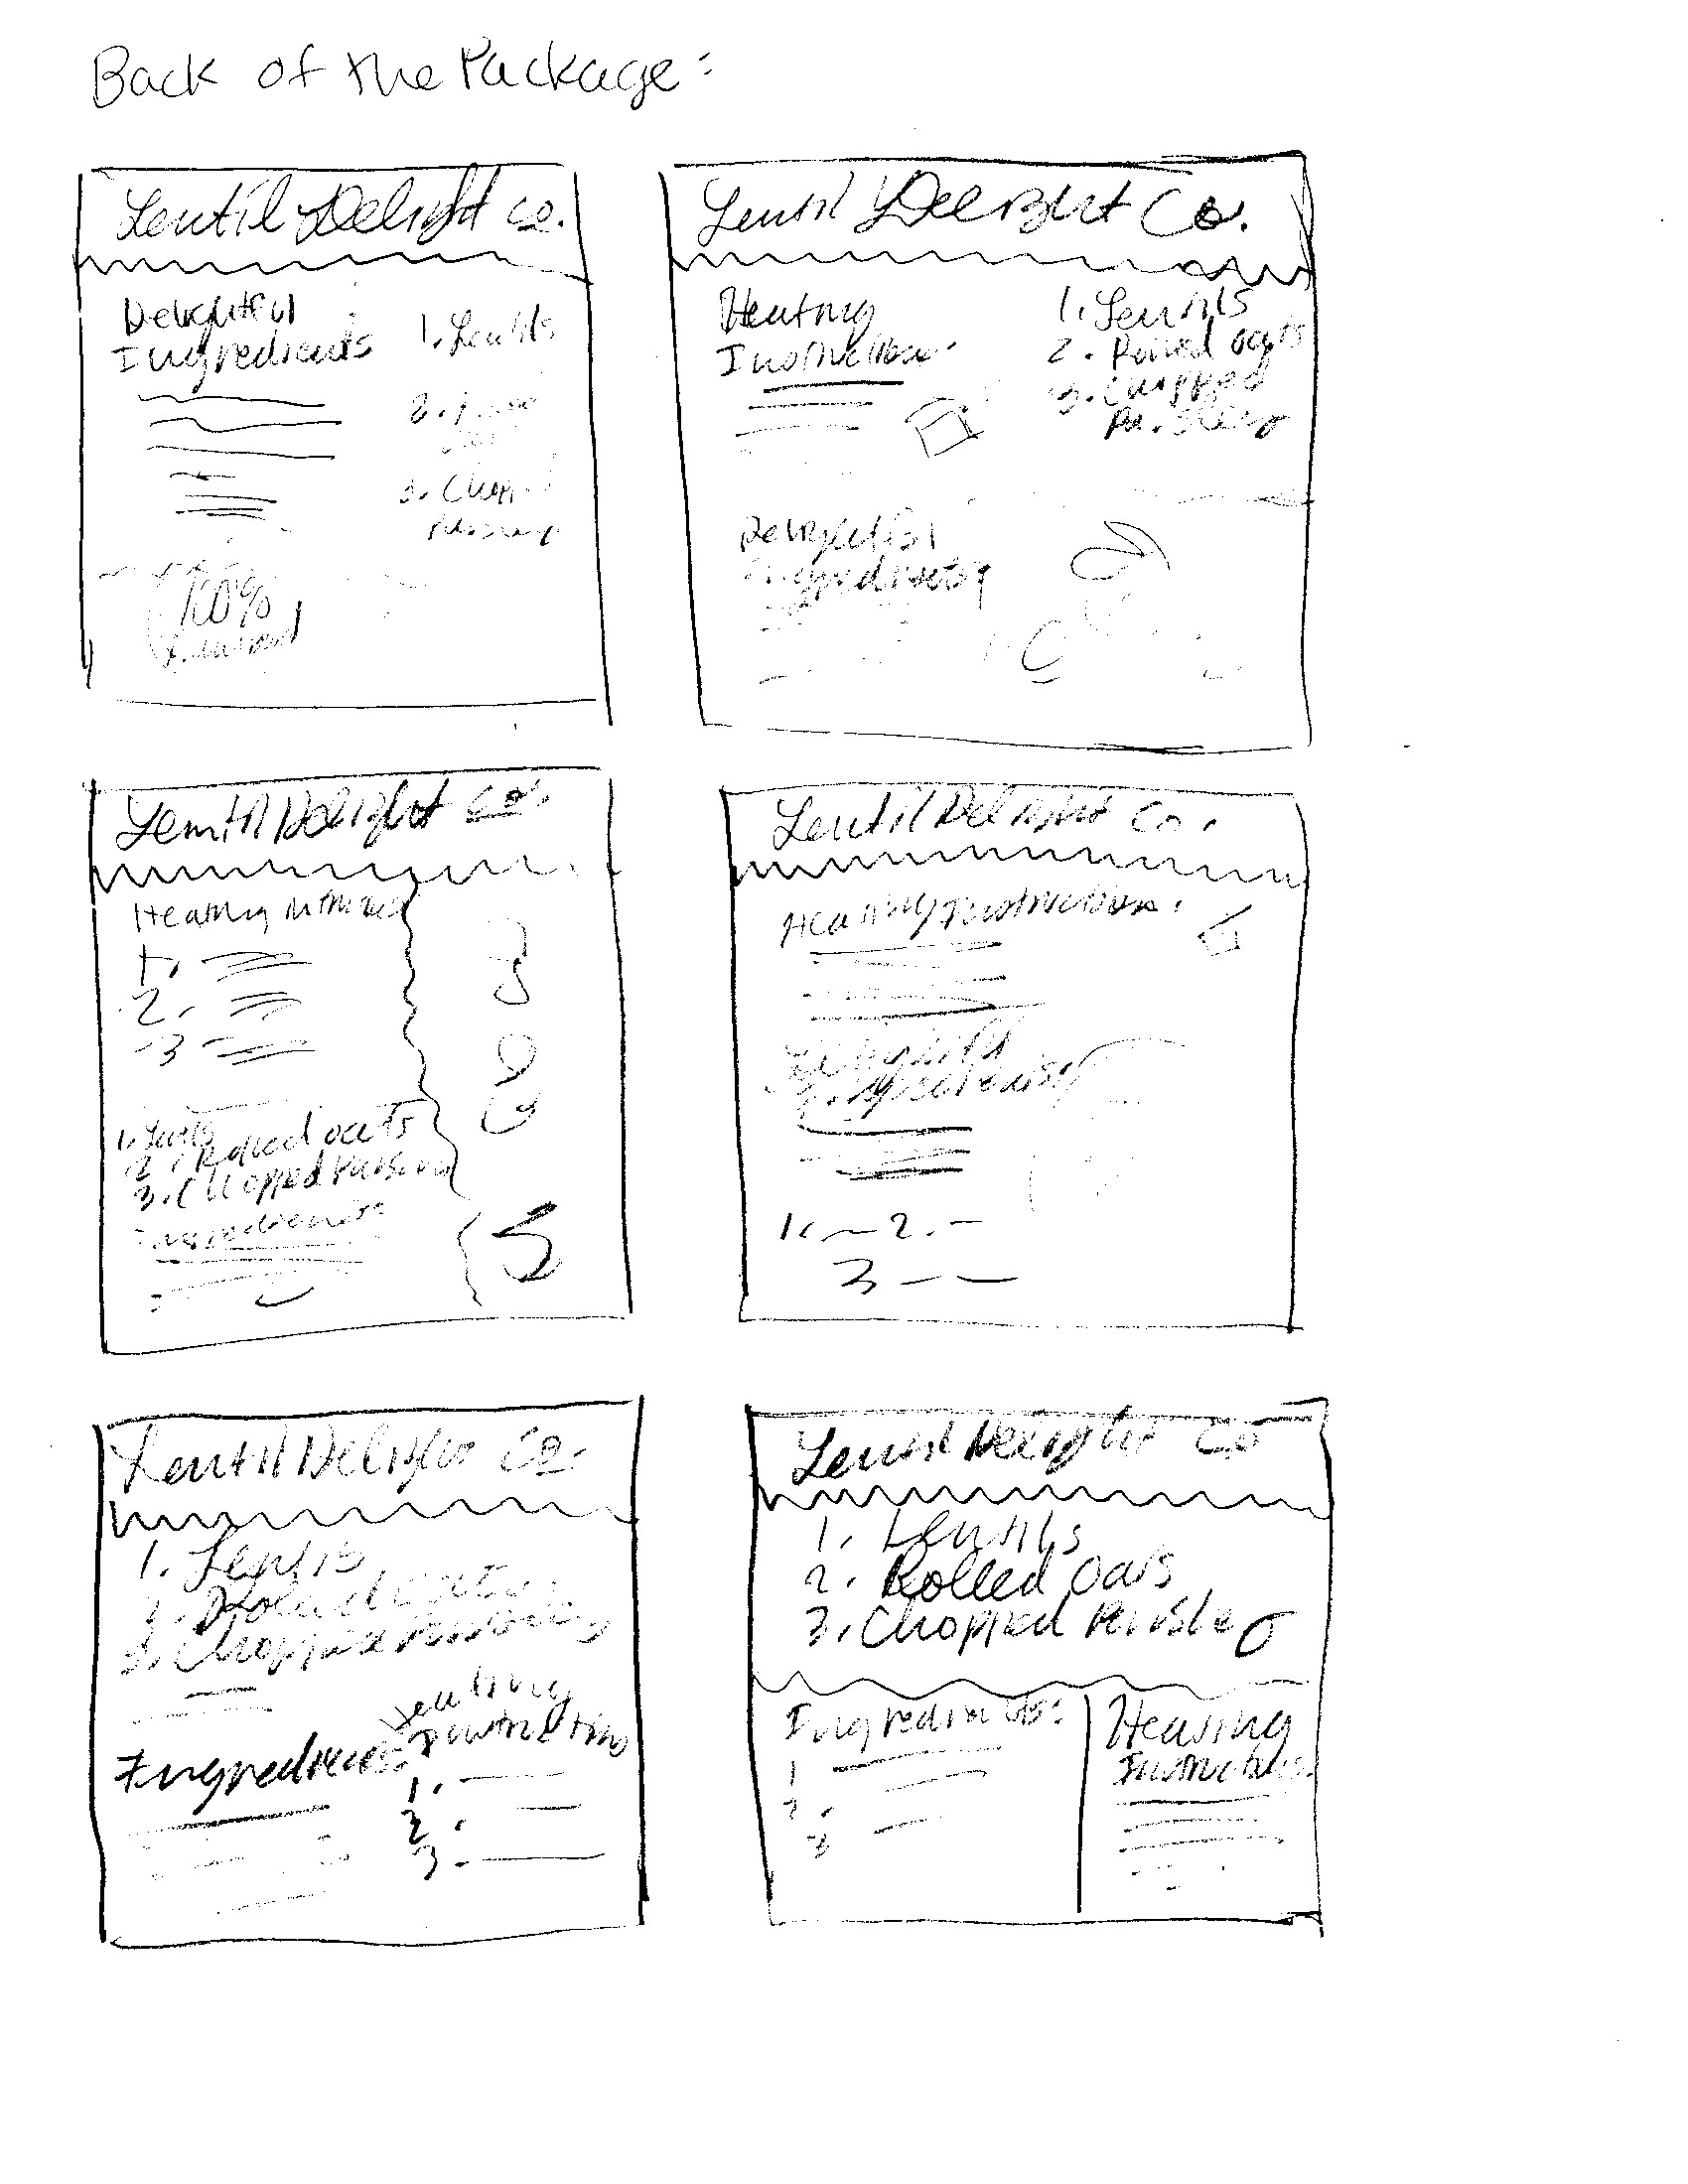 Back of the Package:
Lentil Delight Co.
Delightful
Ingredients
1. Lentils
2.
3. Chopped
Parsley
100%
Lentil Delight Co.
Heating
Instructions
1. Lentils
2. Rolled oats
3. Chopped
Parsley
Delightful
Ingredients
Lentil Delight Co.
Heating
1.
2.
3
1. Lentils
2. Rolled oats
3. Chopped Parsley
Ingredients
Lentil Delight Co.
Heating Instructions.
Delightful
Ingredients
1. 2.
3
Lentil Delight Co.
1. Lentils
2. Rolled oats
3. Chopped Parsley
Heating
Instructions
Ingredients:
1.
2.
3.
Lentil Delight Co
1. Lentils
2. Rolled Oats
3. Chopped Parsley
Ingredients:
1
2.
3
Heating
Instructions